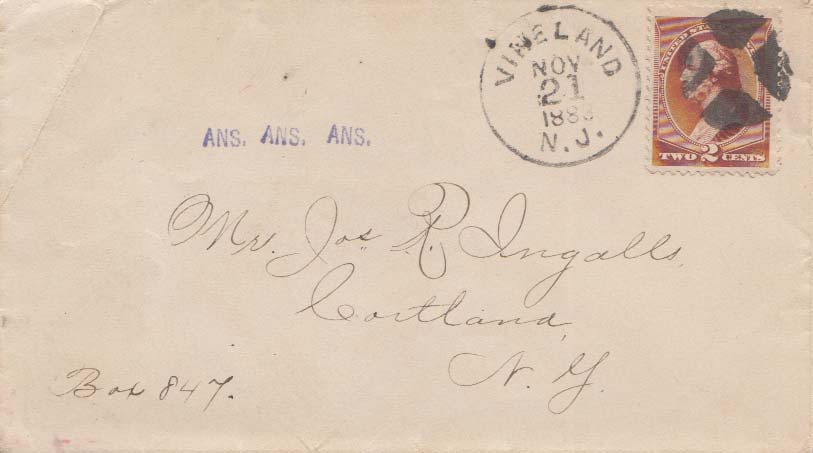 VINELAND
NOV
21
1883
N.J.
UNITED STATES
TWO 2 CENTS
ANS. ANS. ANS.
Mr. Jos. R. Ingalls,
Cortland,
N. Y.
Box 847.